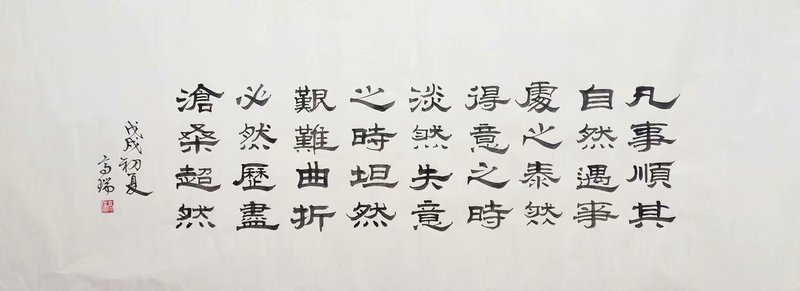 凡事順其
自然遇事
處之泰然
得意之時
淡然失意
之時坦然
艱難曲折
必然歷盡
滄桑超然
戊戌初夏
高瑞